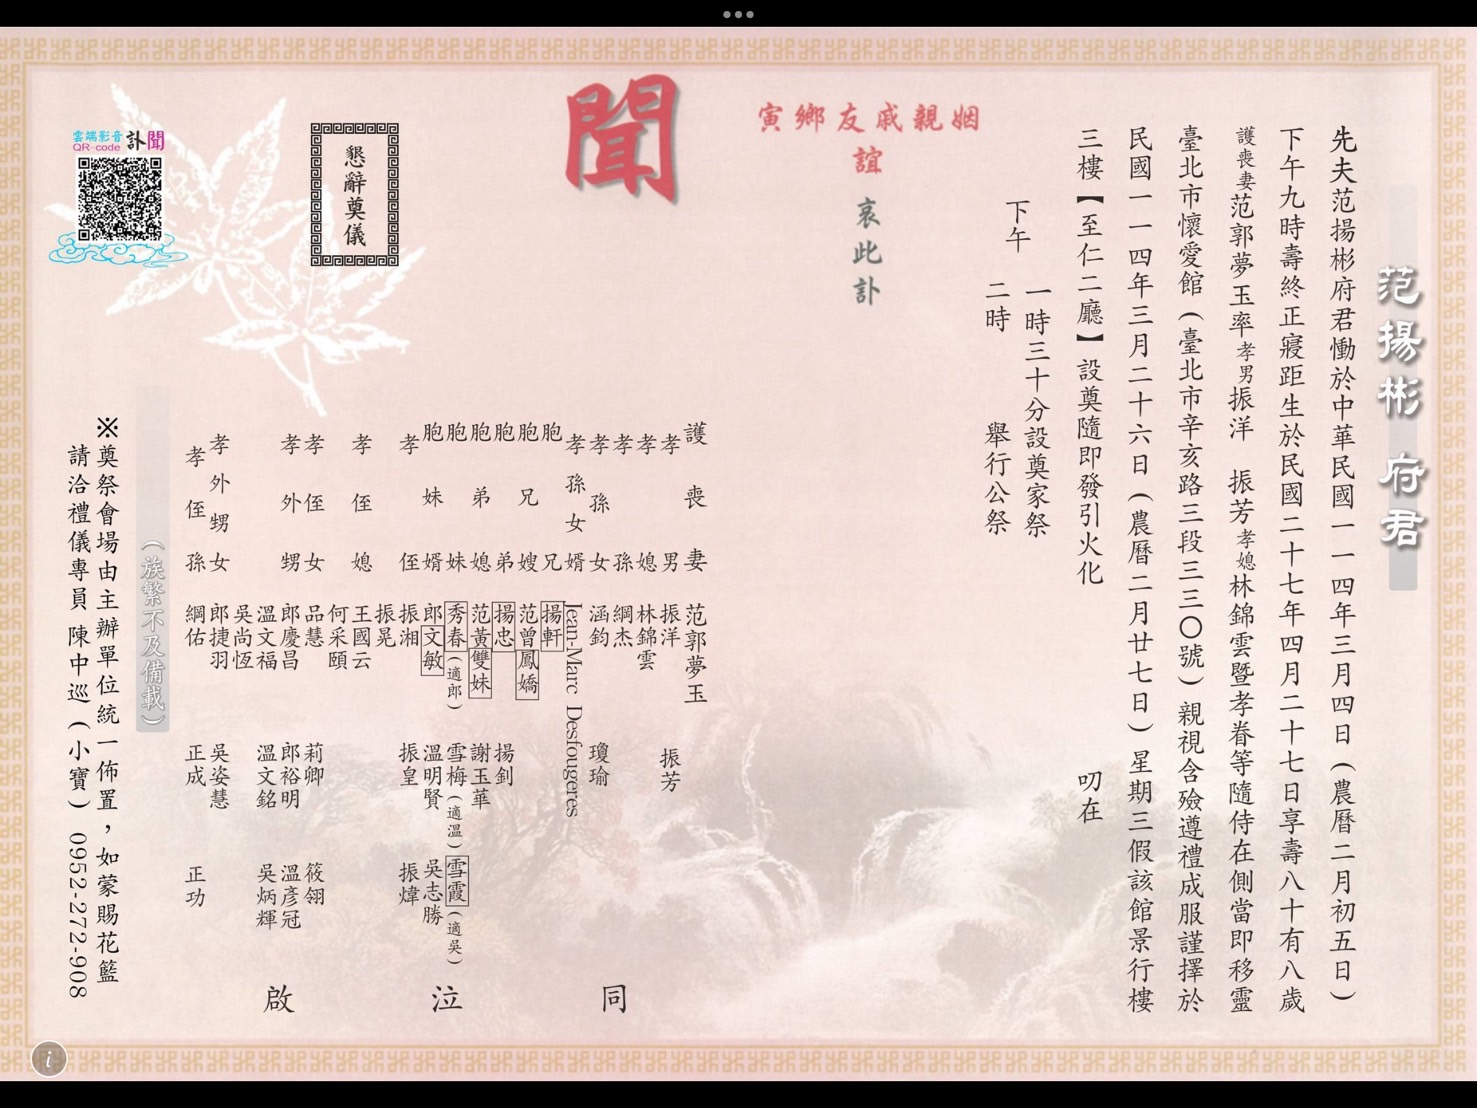 范揚彬 府君
先夫范揚彬府君慟於中華民國一一四年三月四日(農曆二月初五日)
下午九時壽終正寢距生於民國二十七年四月二十七日享壽八十有八歲
護喪妻范郭夢玉率孝男振洋 振芳孝媳林錦雲暨孝眷等隨侍在側當即移靈
臺北市懷愛館(臺北市辛亥路三段三三〇號)親視含殮遵禮成服謹擇於
民國一一四年三月二十六日(農曆二月廿七日)星期三假該館景行樓
三樓【至仁二廳】設奠隨即發引火化 叨在
下午
一時三十分設奠家祭
二時 舉行公祭
姻親戚友鄉寅
誼
哀此訃
聞
護喪妻 范郭夢玉
孝男 振洋 振芳
孝媳 林錦雲
孝孫 綱杰
孝孫女 涵鈞 瓊瑜
孝孫女婿 Jean-Marc Desfougeres
胞兄 揚軒
胞兄嫂 范曾鳳嬌
胞弟 揚忠 揚釗
胞弟媳 范黃雙妹 謝玉華
胞妹 秀春(適郎) 雪梅(適溫) 雪霞(適吳)
胞妹婿 郎文敏 溫明賢 吳志勝
孝侄 振湘 振皇 振煒
振晃
孝侄媳 王國云
何采頤
孝侄女 品慧 莉卿 筱翎
孝外甥 郎慶昌 郎裕明 溫彥冠
溫文福 溫文銘 吳炳輝
吳尚恆
孝外甥女 郎捷羽 吳姿慧
孝侄孫 綱佑 正成 正功
同
泣
啟
(族繁不及備載)
懇辭奠儀
雲端影音
QR-code
訃聞
※奠祭會場由主辦單位統一佈置,如蒙賜花籃
請洽禮儀專員 陳中巡(小寶) 0952-272-908